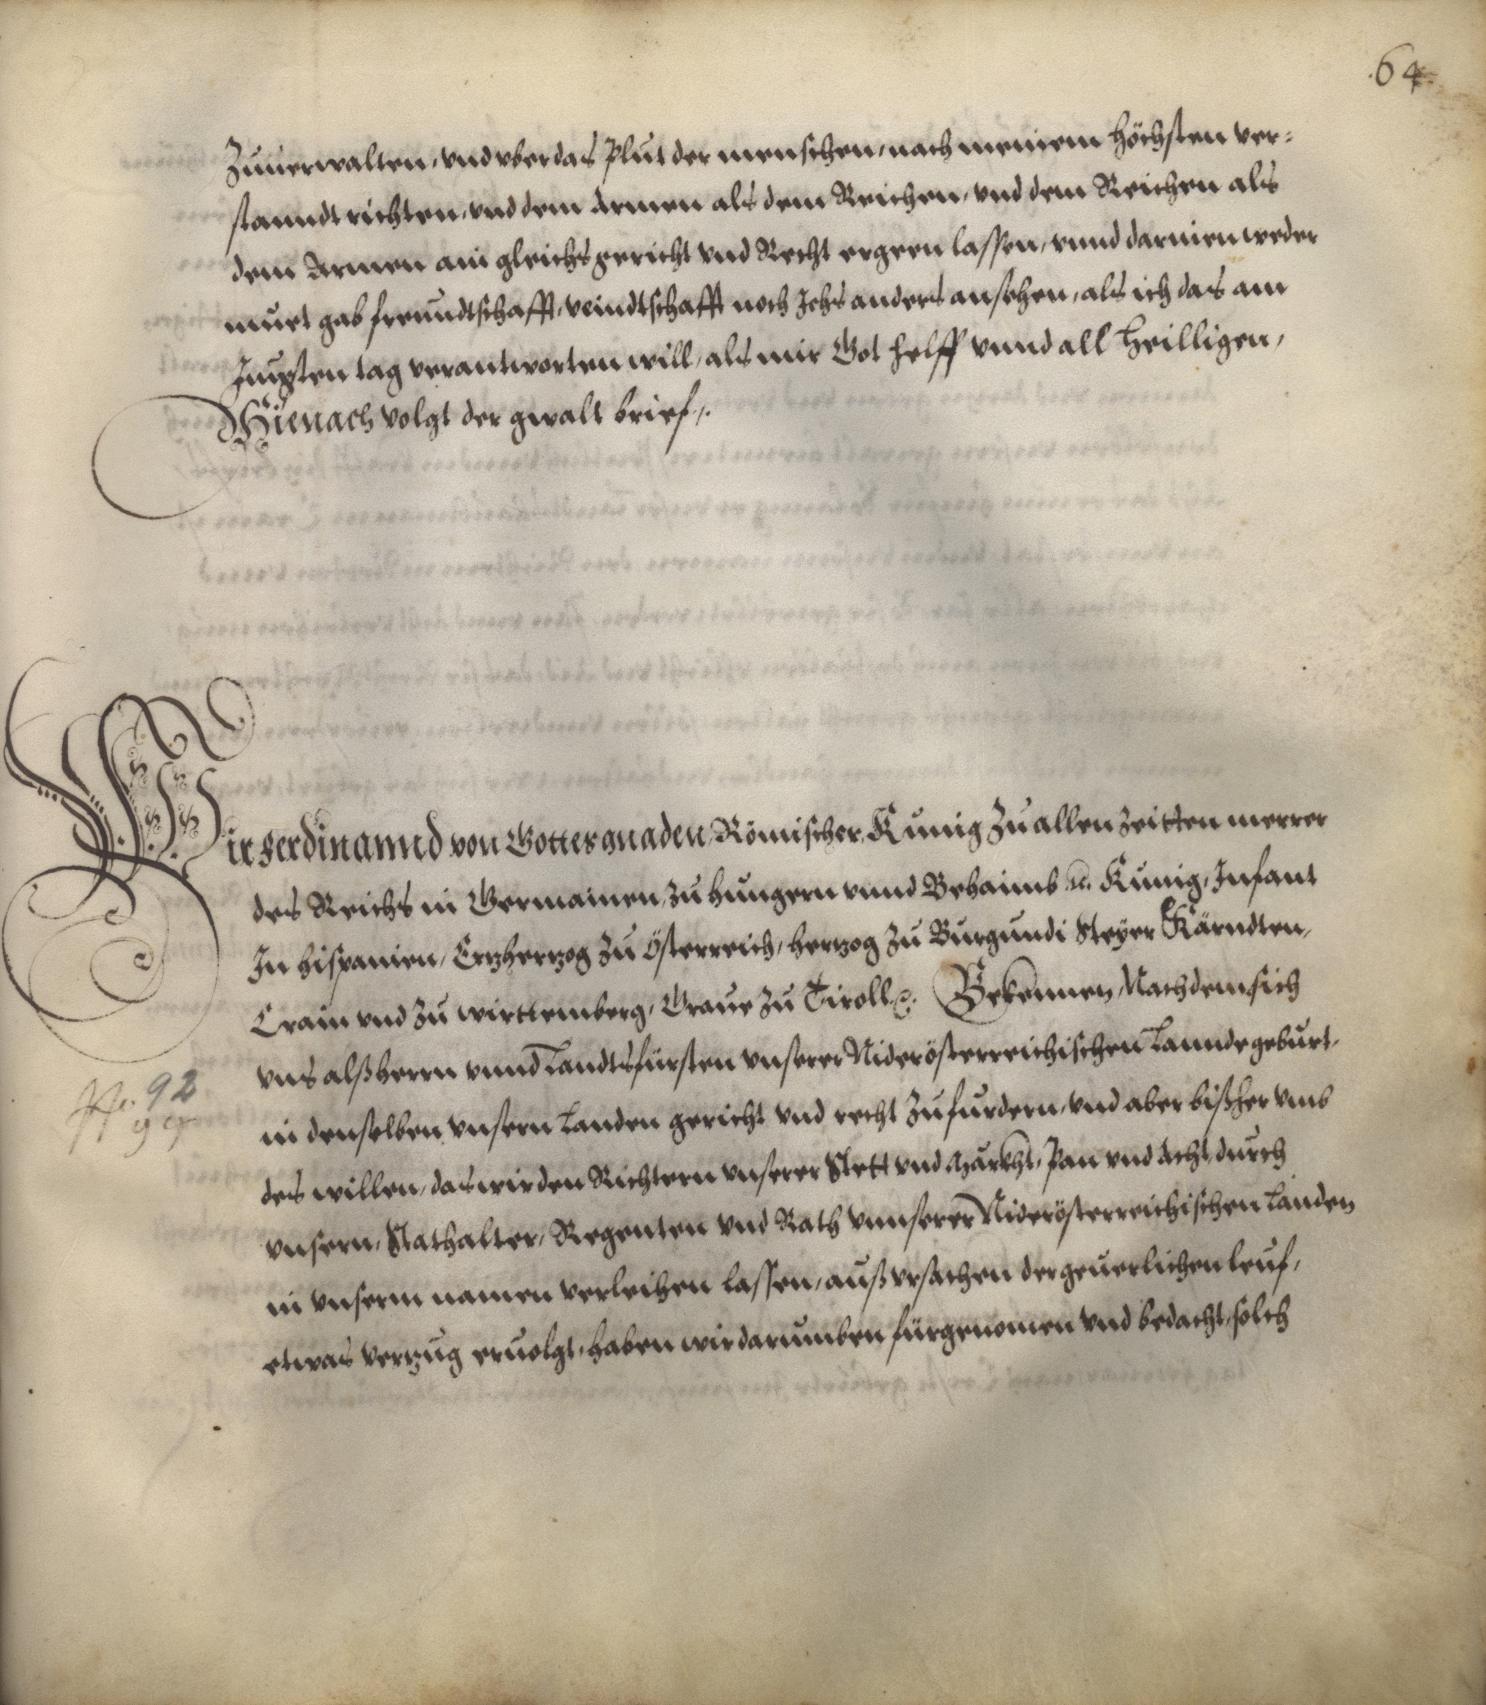 .64.
Zuuerwalten, vnd vber das Plut der menschen, nach meinem höchsten ver=
stanndt richten, vnd dem Armen als dem Reichen, vnd dem Reichen als
dem Armen ain gleichs gericht vnd Recht ergeen lassen, vnnd darinen weder
muet gab freundtschafft, veindtschafft noch Ichs anders ansehen, als ich das am
Jungsten tag verantworten will, als mir Got helff vnnd all heilligen,
Hienach volgt der gwalt brief,.
Wir Ferdinannd von Gottes gnaden, Römischer, Kunig Zu allen Zeitten merrer
des Reichs in Germainen, zu Hungern vnnd Behaimb etc. Kunig, Infant
In hispanien, Ertzhertzog Zu Österreich, hertzog Zu Burgundi Steyer Kärndten,
Crain vnd Zu wirttemberg, Graue Zu Tiroll etc. Bekennen, Nachdem sich
vns alß herrn vnnd Landtsfürsten vnserer Niderösterreichischen Lannde geburt,
in denselben vnsern Landen gericht vnd recht Zufurdern, vnd aber bißher vmb
des willen, das wir den Richtern vnserer Stett vnd Märckht, Pan vnd Acht, durch
vnsern, Stathalter, Regenten vnd Räth vnnserer Niderösterreichischen Landen
in vnserm namen verleihen lassen, auß vrsachen der geuerlichen leuf,
etwas vertzug eruolgt, haben wir darumben fürgenomen vnd bedacht, solch
92